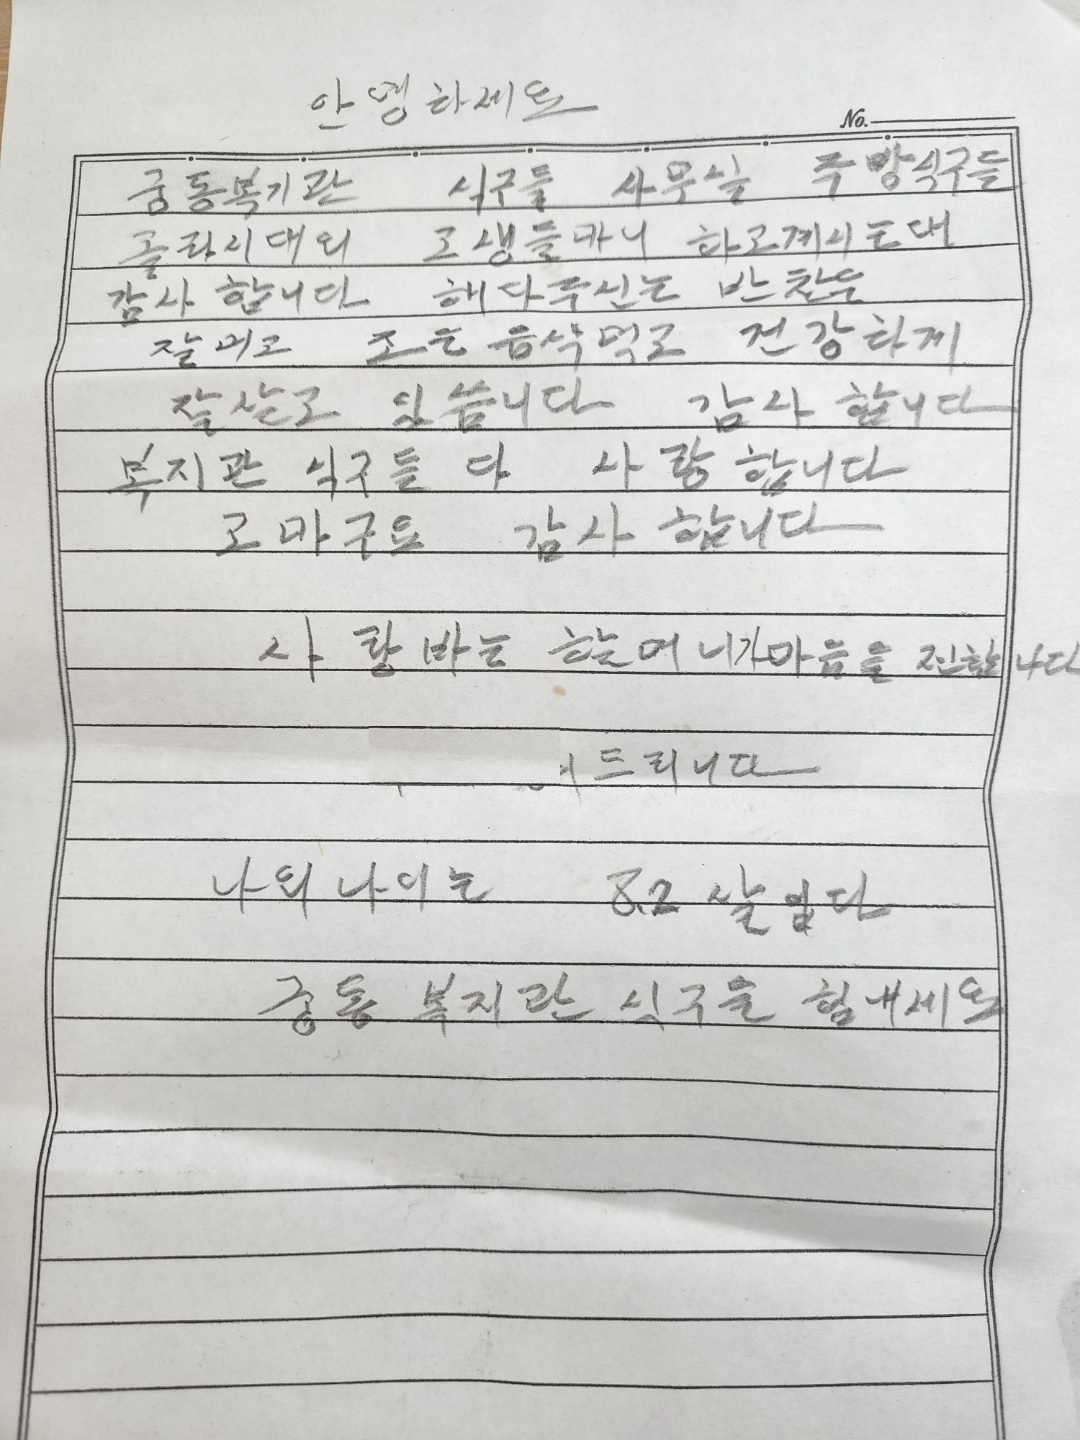 안녕하세요
No.
궁동복기관 식구들 사무실 주방식구들
콜라시대외 고생들마니 하고게시는대
감사 합니다 해다주신는 반찬두
잘머고 조은 음식먹고 건강하게
잘살고 있씁니다 감사 합니다
복지관 식구들 다 사랑합니다
고마구요 감사 합니다
사랑바는 할머니가마음을 전합니다
드리니다
나의나이는 8.2 살입다
궁동 복지관 식구을 힘내세요